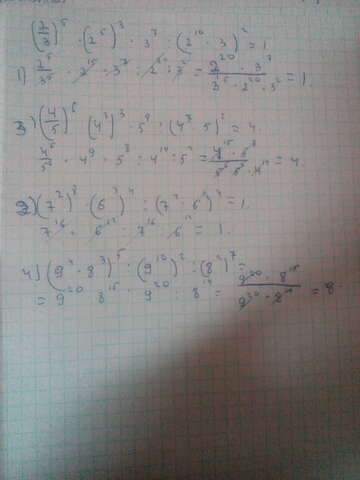 (2/3)⁵ · (2⁵)³ · 3⁷ : (2¹⁰ · 3)² = 1
1) 2⁵/3⁵ · 2¹⁵ · 3⁷ : 2²⁰ : 3² = 2²⁰ · 3⁷ / 3⁵ · 2²⁰ · 3² = 1.
3) (4/5)⁶ · (4³)³ · 5⁸ : (4⁷ · 5)² = 4
· 4⁹ · 5⁸ : 4¹⁴ : 5² = = 4.
2) (7²)⁸ · (6³)⁴ : (7⁴ · 6³)⁴ = 1.
7¹⁶ · 6¹² : 7¹⁶ · 6¹² = 1.
4) (9⁴ · 8³)⁵ : (9¹⁰)² : (8²)⁷ =
= 9²⁰ · 8¹⁵ : 9²⁰ : 8¹⁴ = 9²⁰ · 8¹⁵ / 9²⁰ · 8¹⁴ = 8.